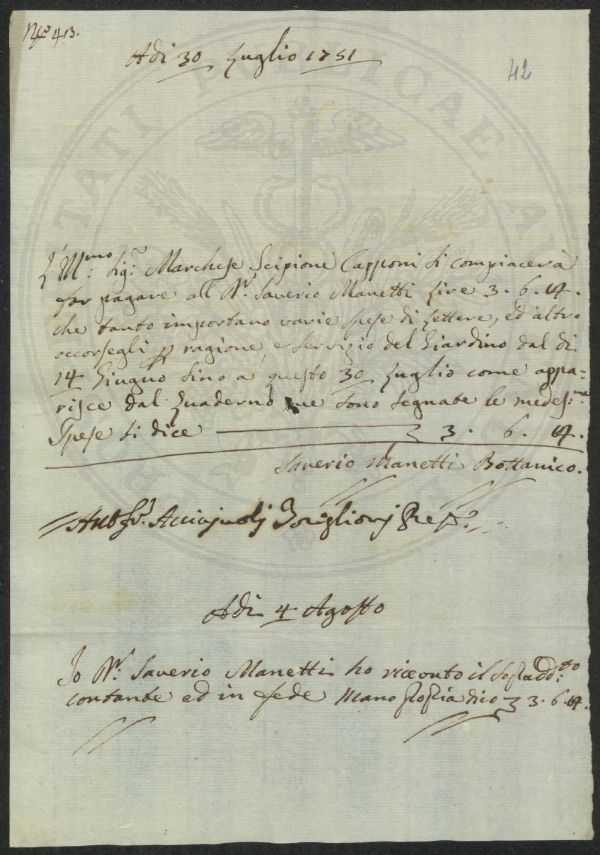 N.º 413.
Adi 30 Luglio 1751
42
L'Ill.mo Sig.re Marchese Scipione Capponi si compiacerà
far pagare al D.r Saverio Manetti Lire 3. 6. 4.
che tanto importano varie spese di Lettere, ed altro
occorsegli p ragione, e servizio del Giardino dal dì
14 Giugno sino a questo 30 Luglio come appa-
risce dal Quaderno ove sono segnate le medesi.me
Spese si dice 3. 6. 4.
Saverio Manetti Bottanico.
Acciajuoli
Adi 4 Agosto
Io D.r Saverio Manetti ho riceuto il sopradd.to
contante ed in fede mano propria dico 3. 6. 4.